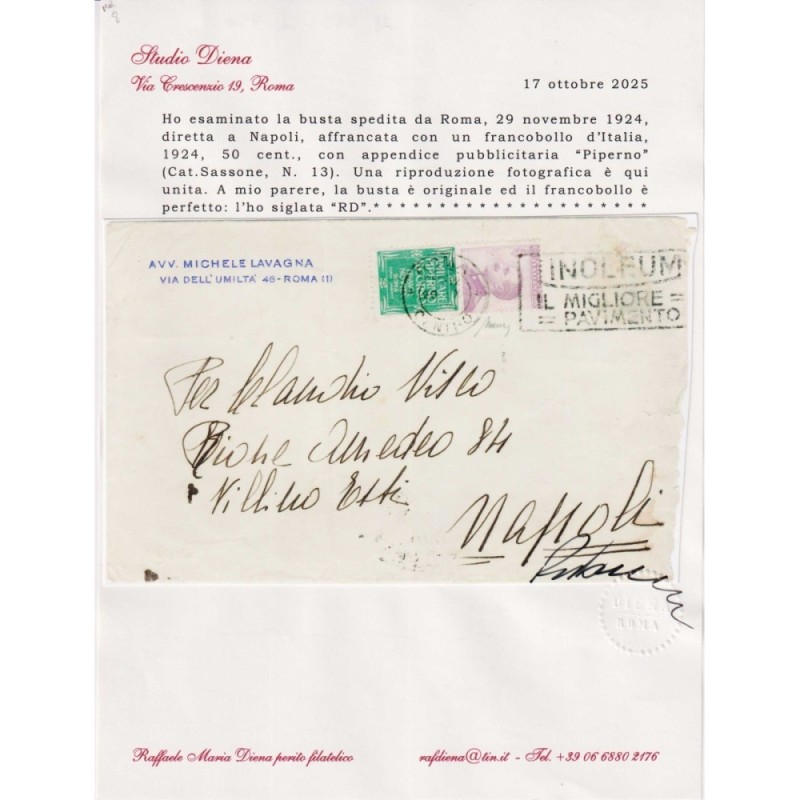 Studio Diena
Via Crescenzio 19, Roma
17 ottobre 2025
Ho esaminato la busta spedita da Roma, 29 novembre 1924,
diretta a Napoli, affrancata con un francobollo d'Italia,
1924, 50 cent., con appendice pubblicitaria "Piperno"
(Cat.Sassone, N. 13). Una riproduzione fotografica è qui
unita. A mio parere, la busta è originale ed il francobollo è
perfetto: l'ho siglata "RD".* * * * * * * * * * * * * * * * * * * * * *
AVV. MICHELE LAVAGNA
VIA DELL'UMILTÀ 46-ROMA (1)
PIPERNO
LINOLEUM
IL MIGLIORE =
= PAVIMENTO
Per Claudio Visco
Rione Amedeo 84
Villino
Napoli
DIENA
ROMA
Raffaele Maria Diena perito filatelico
rafdiena@tin.it - Tel. +39 06 6880 2176